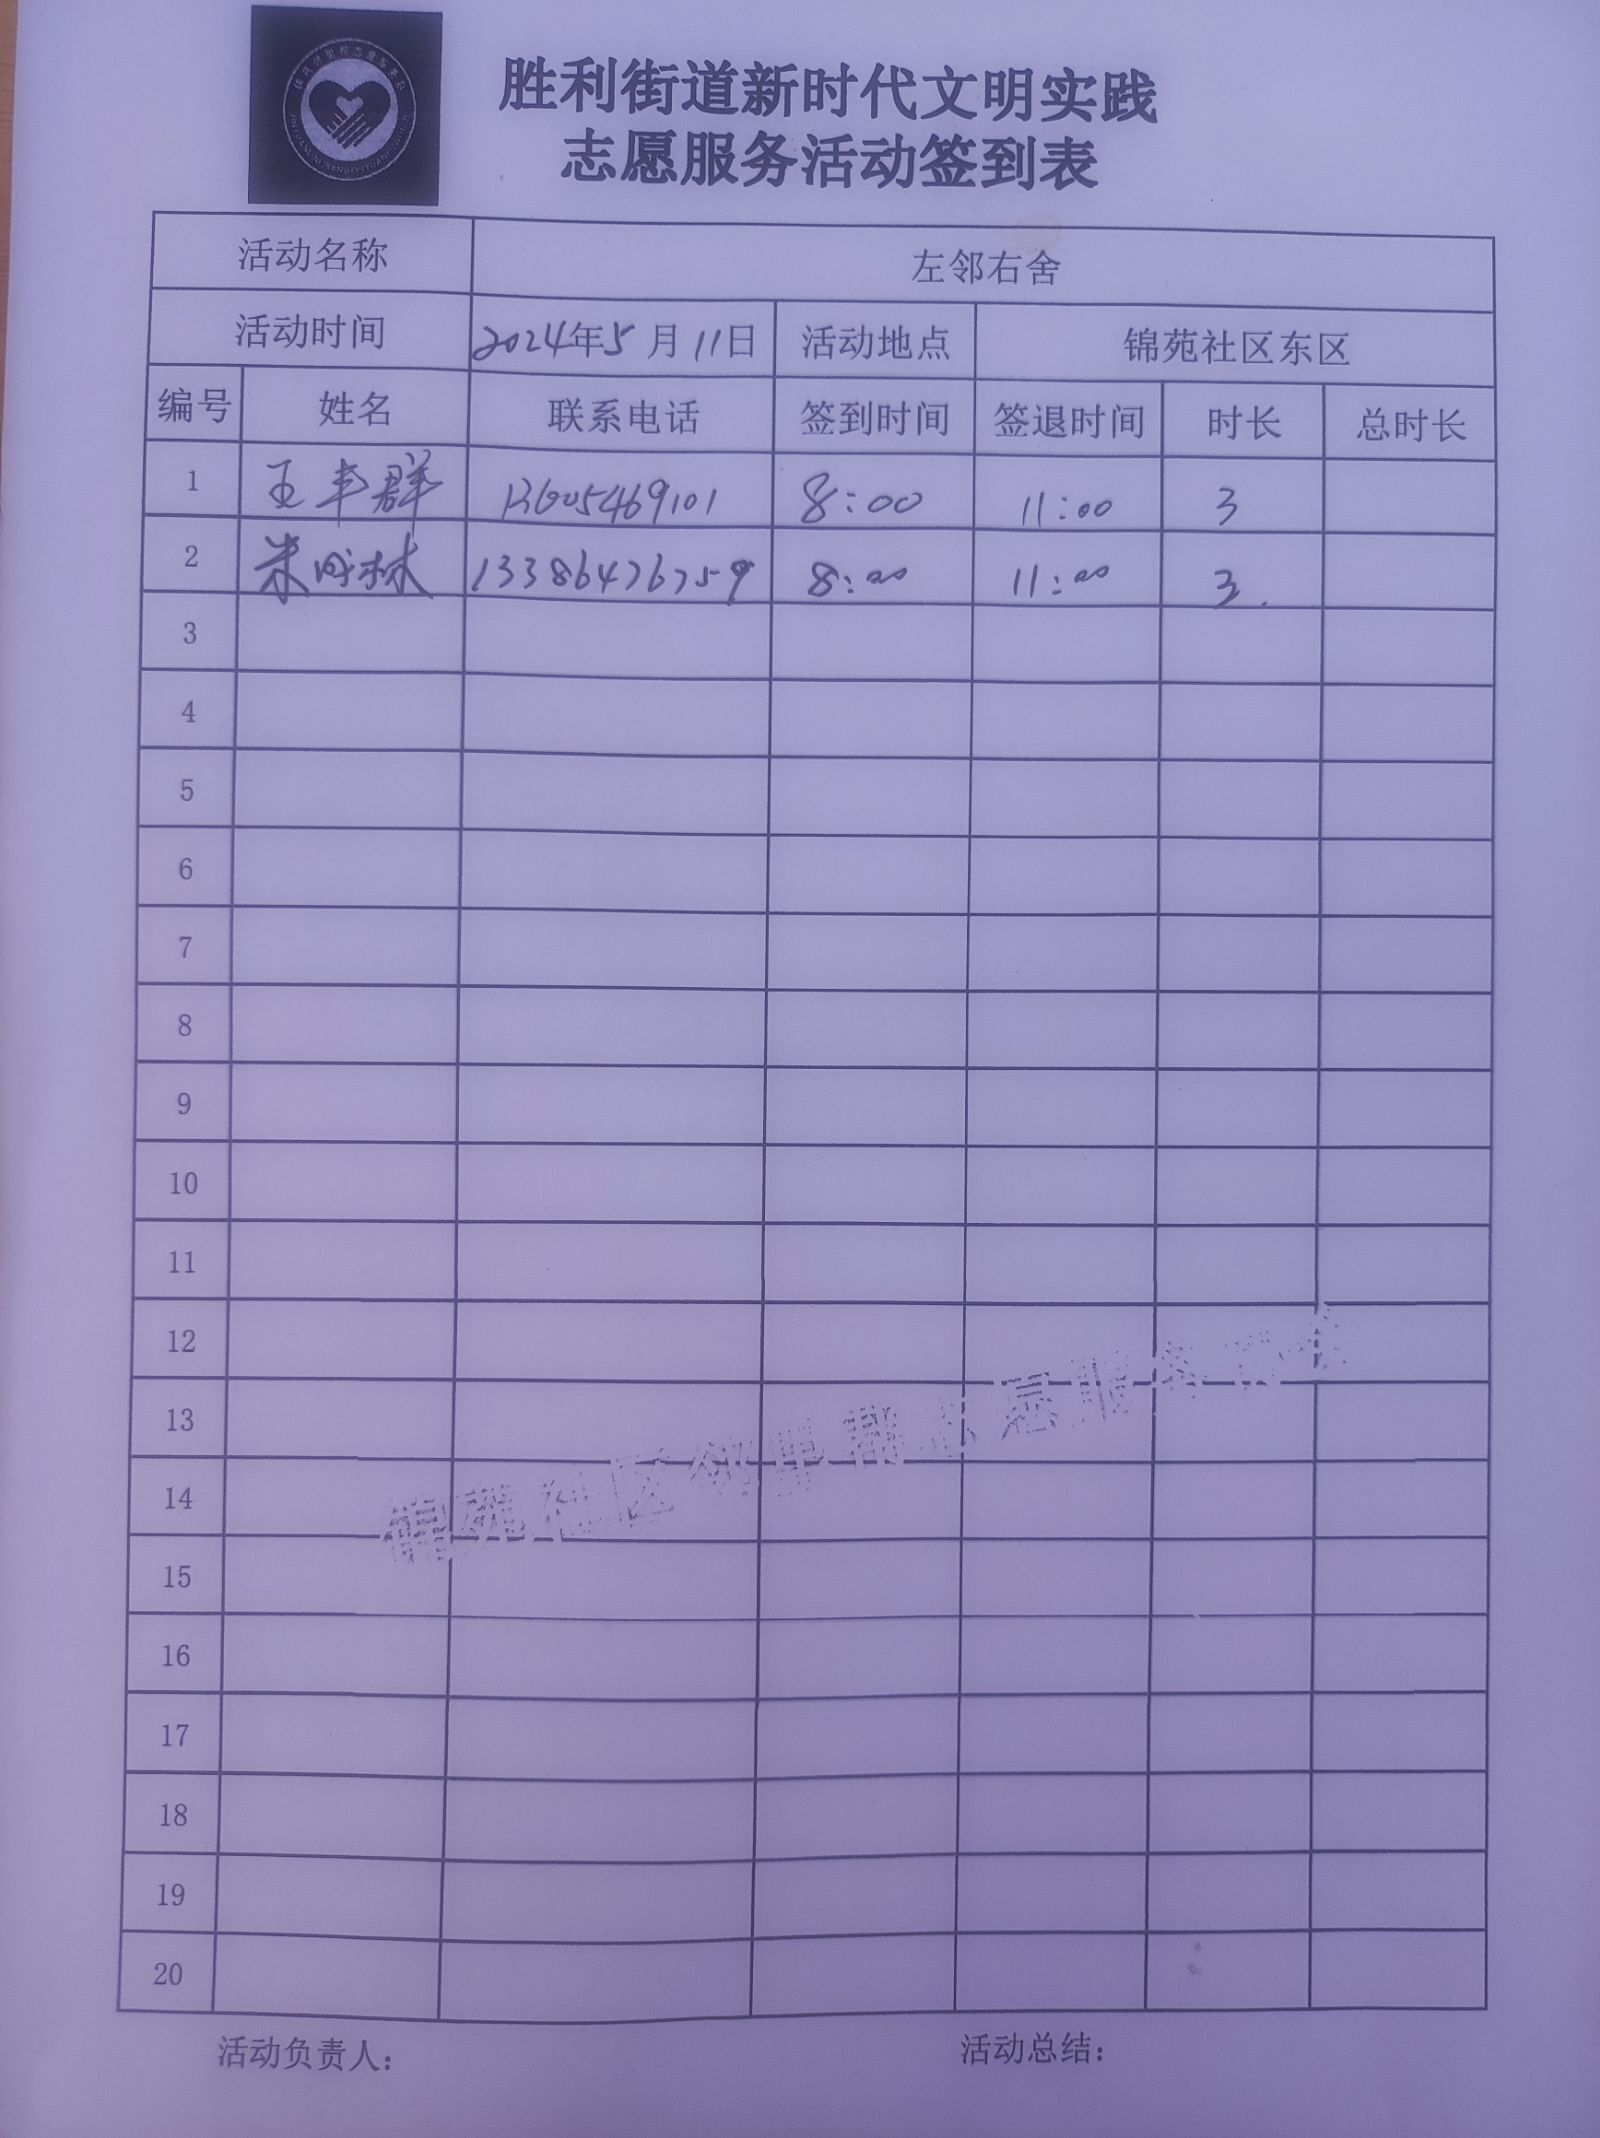 胜利街道新时代文明实践
志愿服务活动签到表
活动名称 左邻右舍
活动时间 2024年5月11日 活动地点 锦苑社区东区
编号 姓名 联系电话 签到时间 签退时间 时长 总时长
1 王丰群 13605469101 8:00 11:00 3
2 林 13386476759 8:00 11:00 3.
3
4
5
6
7
8
9
10
11
12
13
锦苑社区邻里帮志愿服务
14
15
16
17
18
19
20
活动负责人: 活动总结: